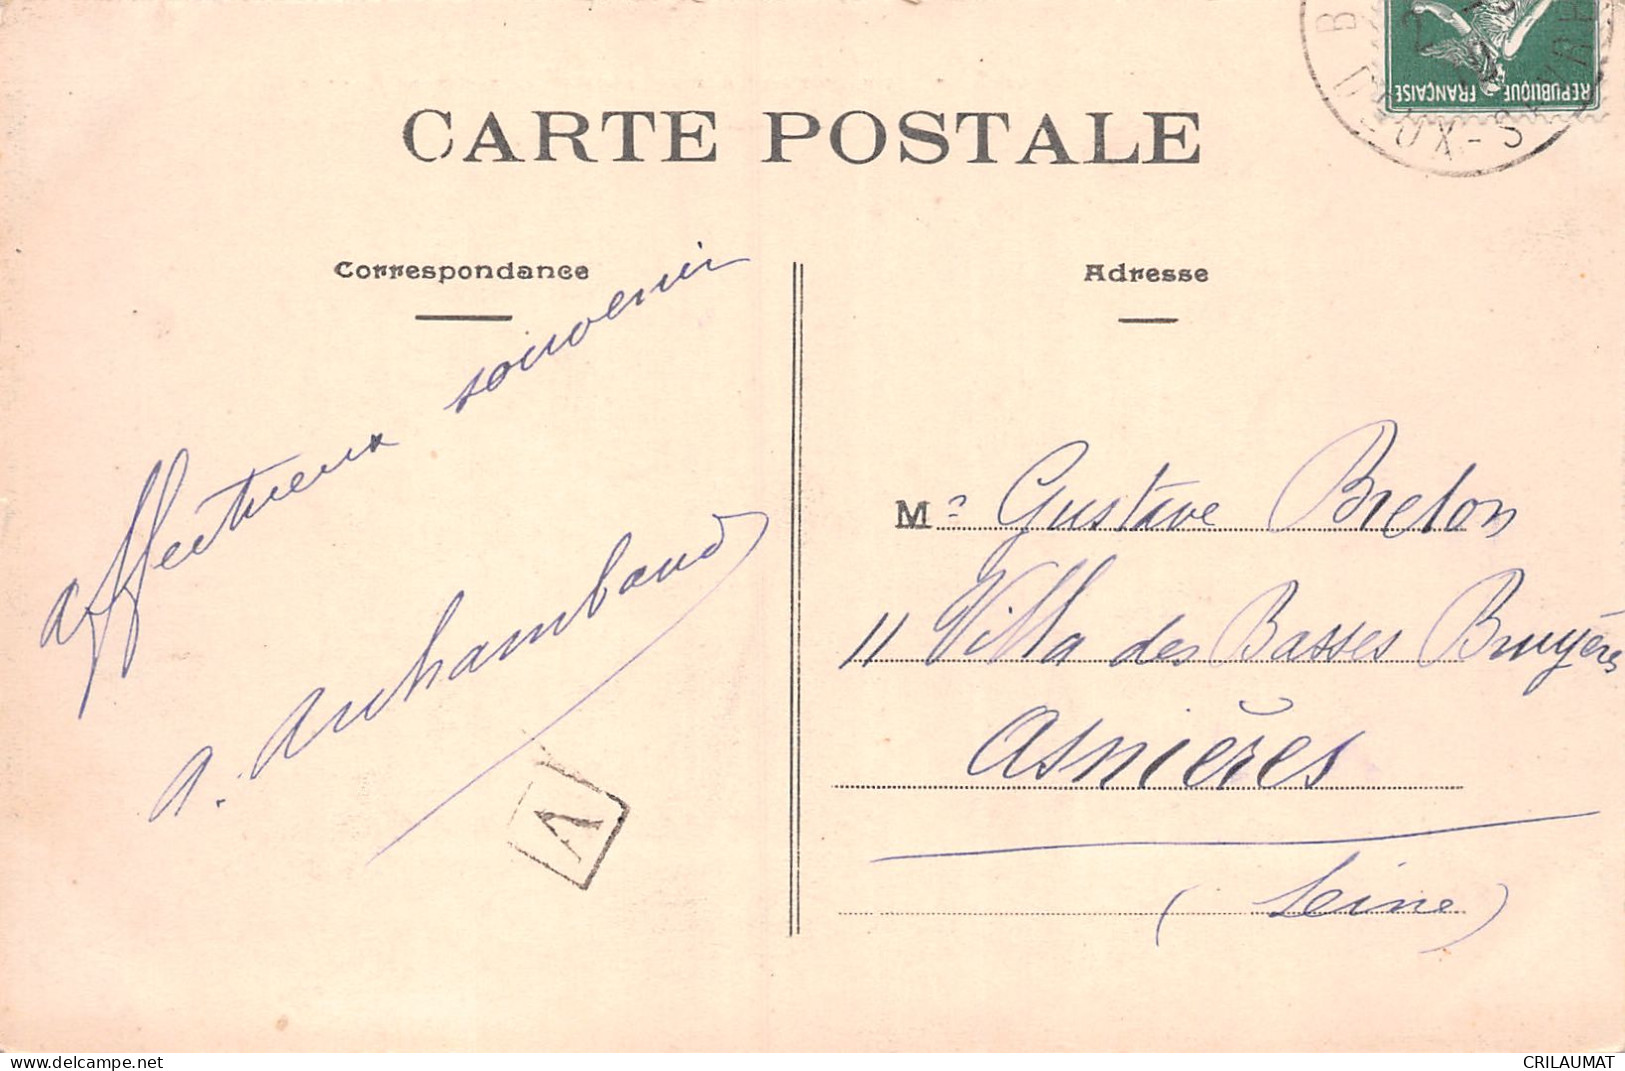 CARTE POSTALE
REPUBLIQUE FRANÇAISE
DEUX-S
Correspondance
affectueux souvenir
A. Archambaud
A
Adresse
Mr Gustave Breton
11 Villa des Basses Bruyères
Asnières
(Seine)
www.delcampe.net
CRILAUMAT